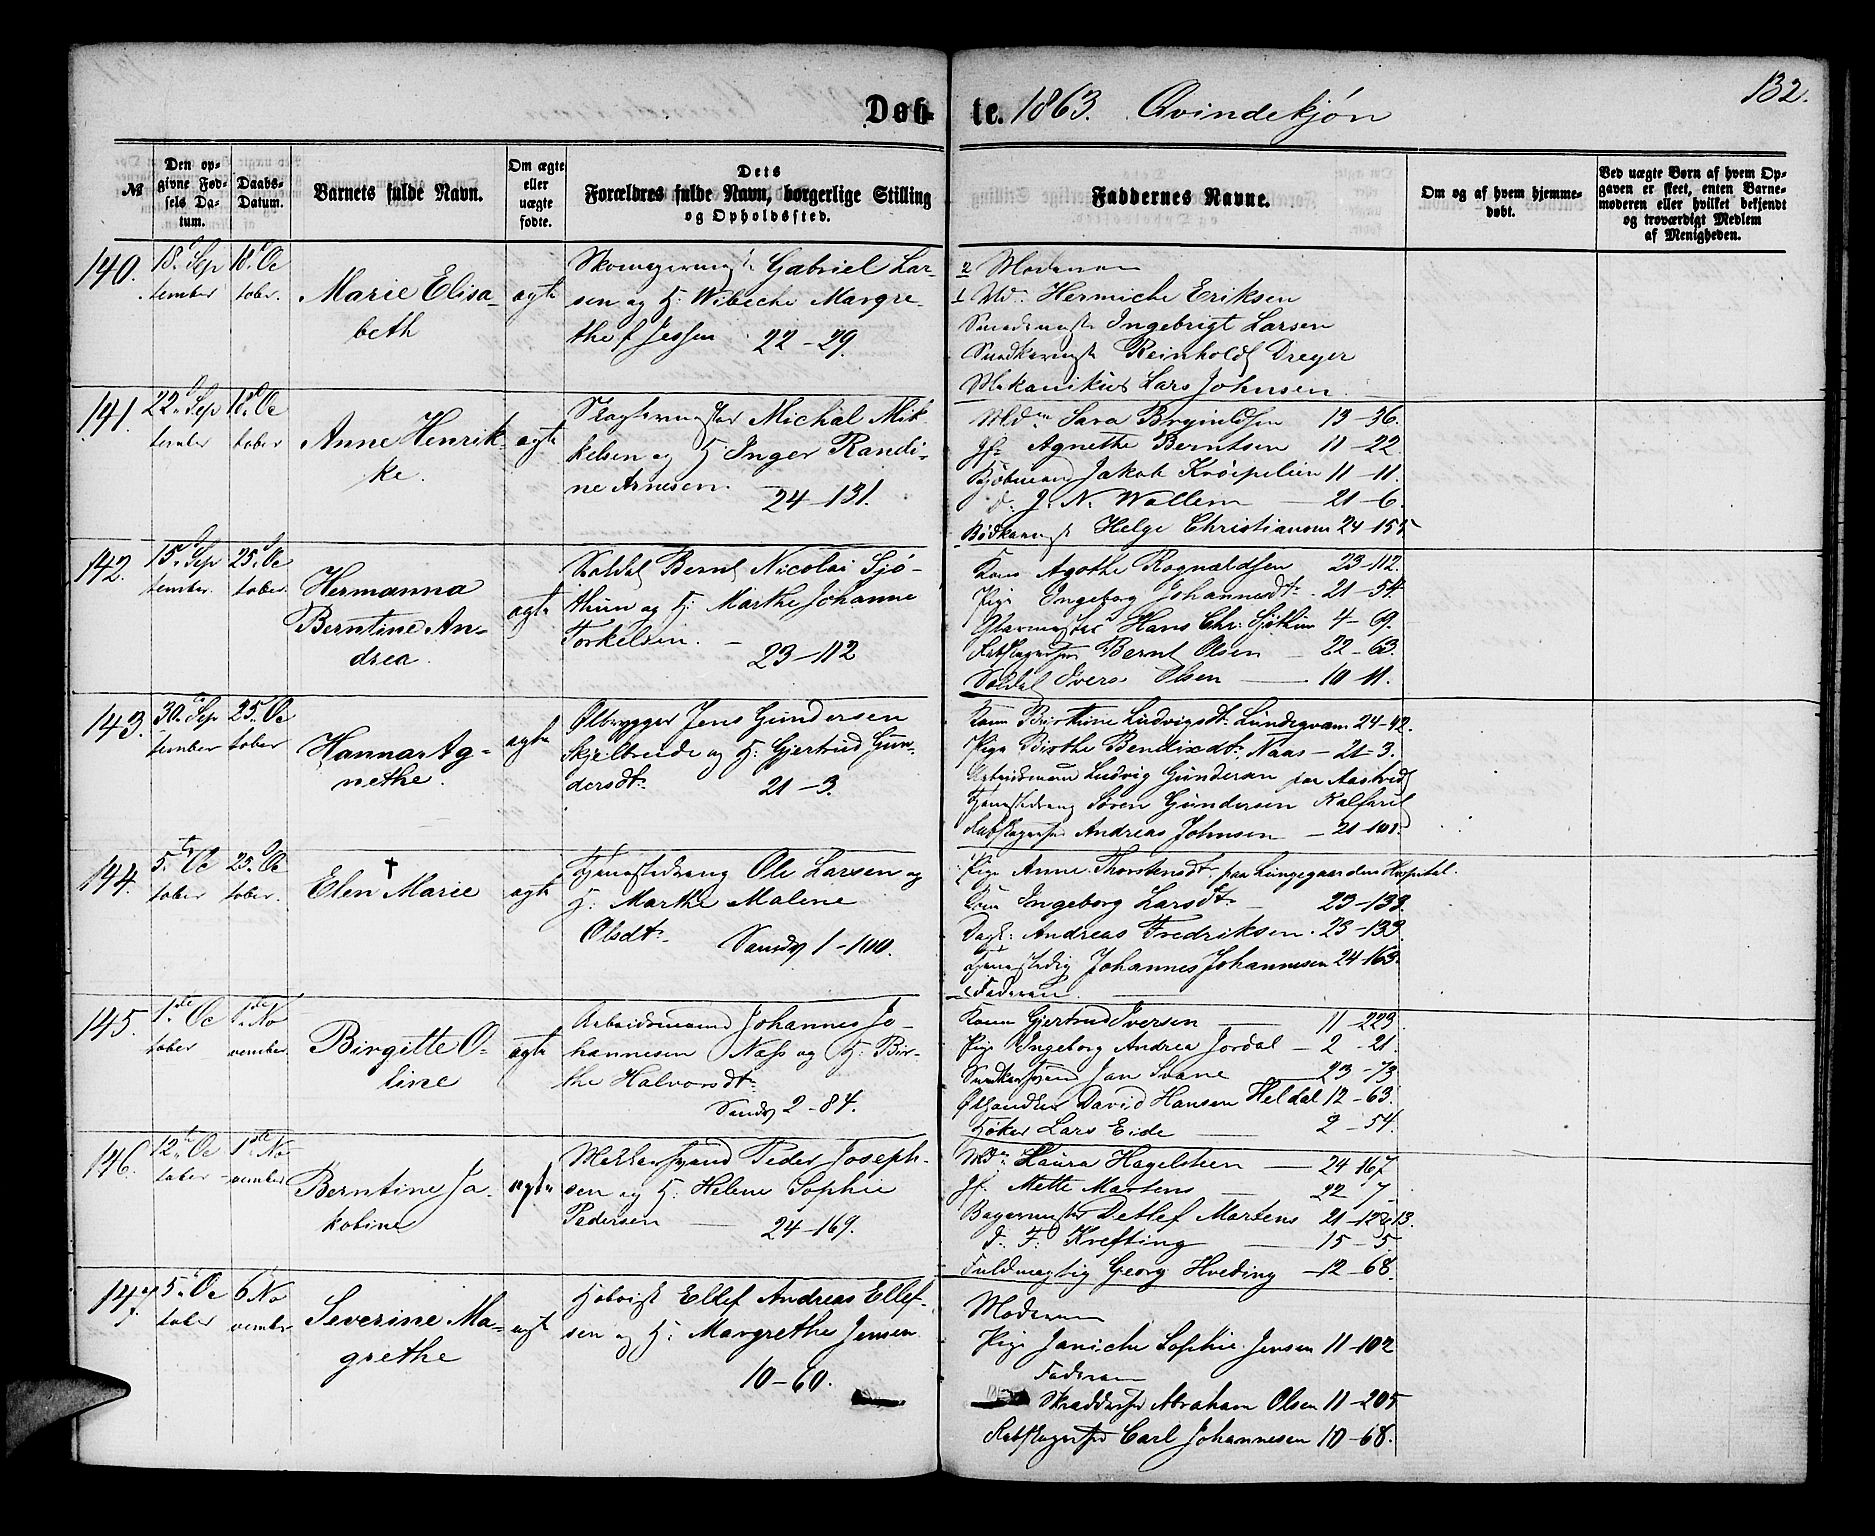 132.
Døbte. 1863. Qvindekjøn
№
Den opgivne Fødsels Datum.
Daabs-Datum.
Barnets fulde Navn.
Om ægte eller uægte fødte.
Dets Forældres fulde Navn, borgerlige Stilling og Opholdssted.
Faddernes Navne.
Om og af hvem hjemmedøbt.
Ved uægte Børn af hvem Opgaven er skeet, enten Barnemoderen eller hvilket bekjendt og troværdigt Medlem af Menigheden.
140. 18. Sep 18. Oc
tember tober.
Marie Elisa-
beth
ægte
Skomagermest Gabriel Lar-
sen og H: Wibeche Margre-
the f Jessen 22-29.
2 Moderen
1 Md. Hermiche Eriksen
Smedemest Ingebrigt Larsen
Snedkermest Reinholdt Dreyer
Mekanikus Lars Johnsen
141. 22. Sep 18. Oc
tember tober
Anne Henrik-
ke.
ægte
Slagtermester Michal Mik-
kelsen og H: Inger Randi-
ne Arnesen. 24-131.
Mdm Sara Brynildsen 13-36.
Jf. Agnethe Berntsen 11-22.
Kjøbmand Jakob Krøepelien 11-11.
d. J. N. Wallem 21-6.
Bødkermest Helge Christiansen 24-155
142. 15. Sep 25. Oc
tember. tober.
Hermanna
Berntine An-
drea.
ægte
Soldat Bernt Nicolai Sjø-
thun og H: Marthe Johanne
Torkelsen. 23-112
Kone Agathe Ragnaldsen 23-112.
Pige Ingeborg Johannesdt. 21-54.
Glarmester Hans Chr: Sjøthun 4-69.
Rebslagersvd Bernt Olsen 22-63.
Soldat Ivers Olsen 10-11.
143. 30. Sep 25. Oc
tember tober
Hanna Ag-
nethe.
ægte
Ølbrygger Jens Gundersen
Skjelbreide og H: Gjertrud Gun-
dersdt. 21-3.
Kone Birthine Ludvigsdt. Lundegvam 24-42.
Pige Birthe Bendixdt. Naas 21-3.
Arbeidsmand Ludvig Gundersen paa Aastvedt
Tjenestedreng Søren Gundersen Kalfaret
Rebslagersvd Andreas Johnsen 21-101.
144. 5. Oc 25. Oc
tober tober.
†
Elen Marie
ægte
Tjenestedreng Ole Larsen og
H: Marthe Malene
Olsdt. Sandv 1-100.
Pige Anne Thorstensdt. paa Lungegaardens Hospital.
Kone Ingeborg Larsdt. 23-139.
Dagk: Andreas Fredriksen. 23-139.
Johannes Johannesen 24-163.
Faderen
145. 1ste Oc 1ste No
tober vember.
Birgitte O-
line
ægte
Arbeidsmand Johannes Jo-
hannesen Næss og H: Bir-
the Halvorsdt.
Sandv 2-84.
Kone Gjertrud Iversen 11-223.
Pige Ingeborg Andrea Jordal 2-21.
Snedkersvend Jan Svane 23-73
Ølhandler David Hansen Heldal 12-63.
Høker Lars Eide 2-54.
146. 12te Oc 1ste No
tober vember
Berntine Ja-
kobine
ægte
Peder Joseph-
sen og H: Helene Sophie
Pedersen 24-169.
Mdm Laura Hagelsteen 24-167
Jf. Mette Martens 22-7
Bagermester Detlef Martens 21-12&13.
d. F. Krefting 15-5.
Fuldmægtig Georg Hveding 12-68.
147. 5. Oc 6 No
tober vember
Severine Ma-
grethe
ægt
Ellef Andreas Ellef-
sen og H: Margrethe Jensen
10-60.
Moderen
Pige Janiche Sophie Jensen 11-102
Faderen
Skræddersvd Abraham Olsen 11-205
Rebslagersvd Carl Johannesen 10-68.